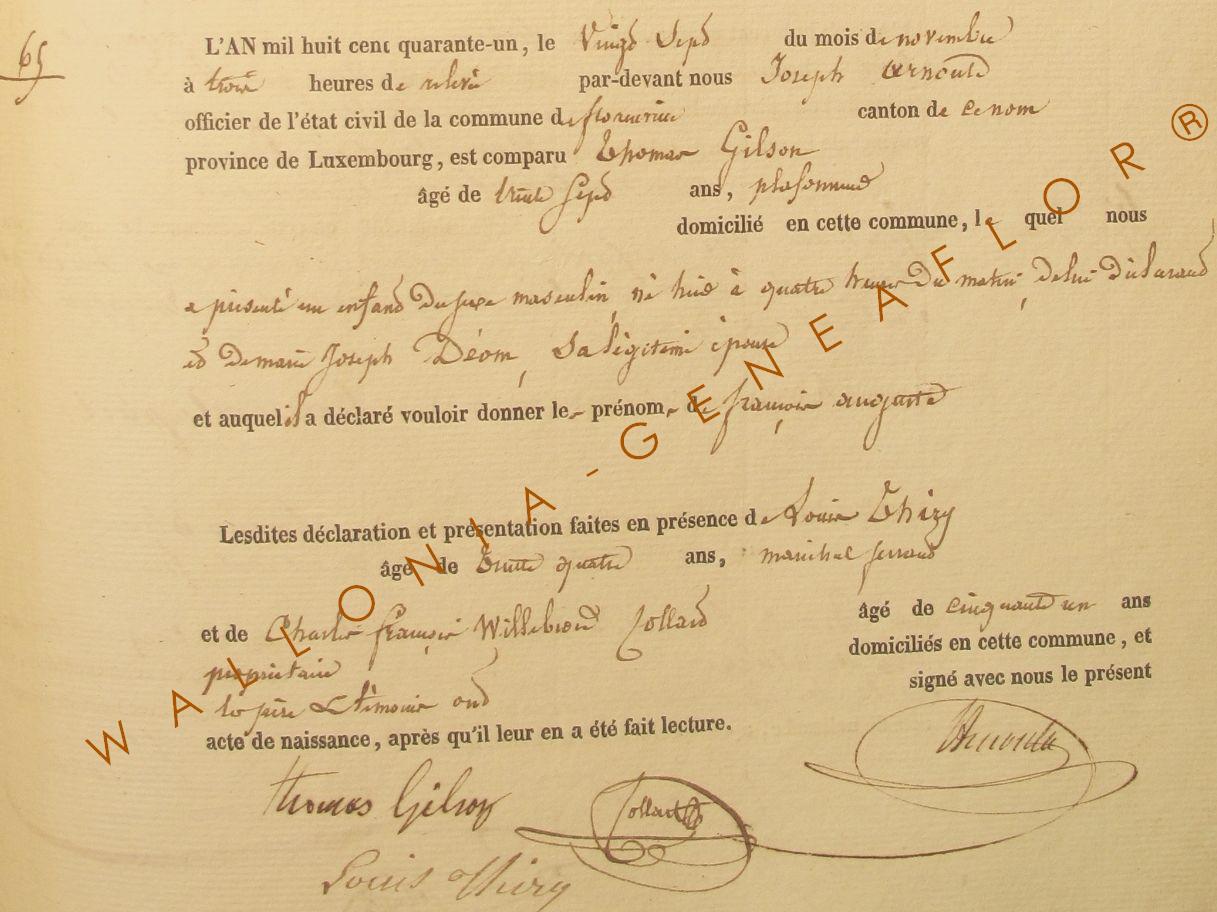 65
L'AN mil huit cent quarante-un, le Vingt Sept du mois de novembre
à trois heures de relevée par-devant nous Joseph Arnould
officier de l'état civil de la commune de florenville canton de ce nom
province de Luxembourg, est comparu Thomas Gilson
âgé de trente Sept ans, plafonneur
domicilié en cette commune, le quel nous
a présenté un enfant du sexe masculin, né hier à quatre heures du matin, de lui déclarant
et de marie Joseph Déom, Sa légitime épouse
et auquel il a déclaré vouloir donner les prénoms de françois auguste
Lesdites déclaration et présentation faites en présence de Louis Thiry
âgé de trente quatre ans, maréchal ferrant
et de Charles françois Willebrord Collard âgé de cinquante un ans
propriétaire domiciliés en cette commune, et
le père & témoins ont signé avec nous le présent
acte de naissance, après qu'il leur en a été fait lecture.
Thomas Gilson Collard Arnould
Louis Thiry
WALLONIA-GENEAFLOR®